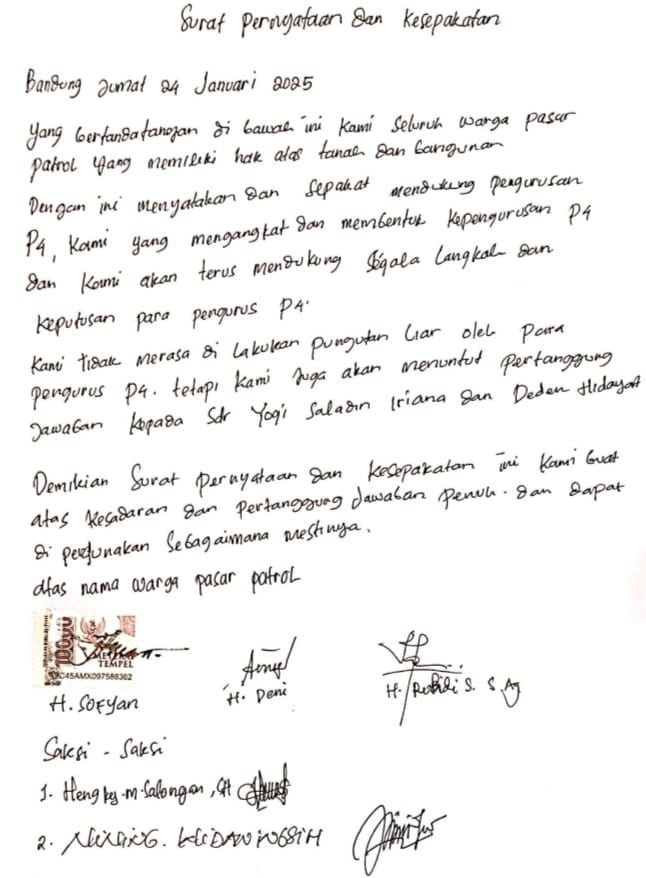 Surat Pernyataan dan Kesepakatan
Bandung Jumat 24 Januari 2025
Yang bertandatangan di bawah ini Kami seluruh warga pasar
patrol yang memiliki hak atas tanah dan bangunan
Dengan ini menyatakan dan sepakat mendukung pengurusan
P4, Kami yang mengangkat dan membentuk kepengurusan P4
dan Kami akan terus mendukung segala langkah dan
keputusan para pengurus P4.
Kami tidak merasa di lakukan pungutan liar oleh para
pengurus P4. tetapi Kami juga akan menuntut pertanggung
jawaban kepada Sdr Yogi Saladin Iriana dan Deden Hidayat
Demikian Surat pernyataan dan kesepakatan ini Kami buat
atas kesadaran dan pertanggung jawaban penuh. dan dapat
di pergunakan sebagaimana mestinya.
Atas nama warga pasar patrol
10000
TEMPEL
C45AMX097588362
H. Sofyan
H. Deni
H. Rubidi S. S.Ag
Saksi - Saksi
1. Hengky.M.Salongan, SH
2. NINING.